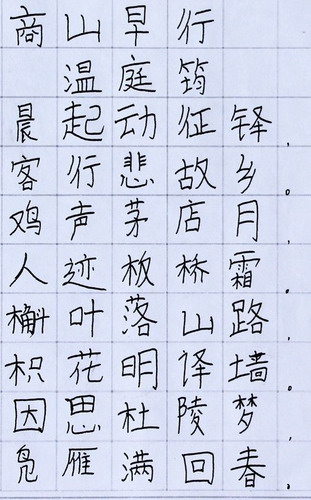 商山早行
温庭筠
晨起动征铎，
客行悲故乡。
鸡声茅店月，
人迹板桥霜。
槲叶落山路，
枳花明译墙。
因思杜陵梦，
凫雁满回春。